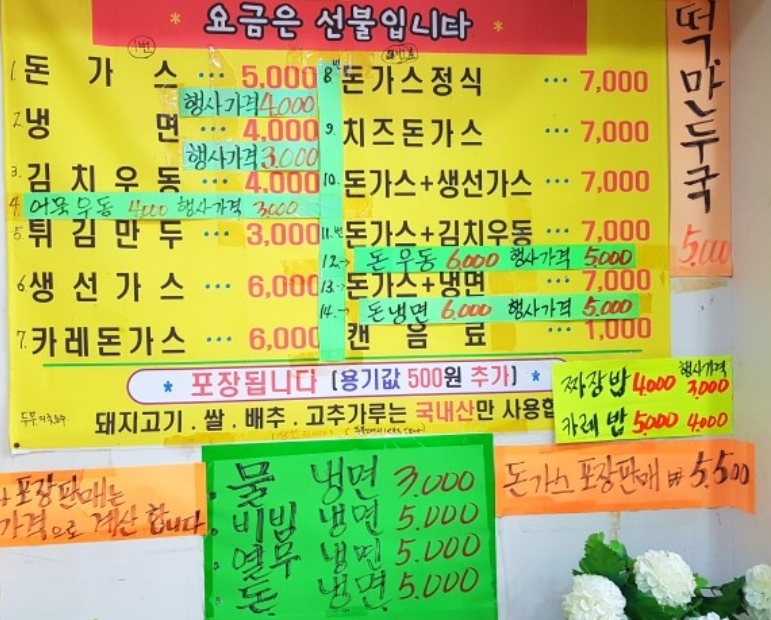 * 요금은 선불입니다 *
1번
1. 돈가스 ··· 5,000
행사가격 4,000
2. 냉면 ··· 4,000
행사가격 3,000
3. 김치우동 ··· 4,000
4. 어묵우동 4,000 행사가격 3,000
5. 튀김만두 ··· 3,000
6. 생선가스 ··· 6,000
7. 카레돈가스 ··· 6,000
8번 돈가스정식 ··· 7,000
9. 치즈돈가스 ··· 7,000
10. 돈가스+생선가스 ··· 7,000
11.번 돈가스+김치우동 ··· 7,000
12.→ 돈우동 6,000 행사가격 5,000
13.→ 돈가스+냉면 ··· 7,000
14.→ 돈냉면 6,000 행사가격 5,000
캔음료 ··· 1,000
떡만두국
5,000
* 포장됩니다 (용기값 500원 추가) *
돼지고기.쌀.배추.고추가루는 국내산만 사용합
행사가격
짜장밥 4,000 3,000
카레밥 5,000 4,000
포장판매는
가격으로 계산합니다.
물냉면 3,000
비빔냉면 5,000
열무냉면 5,000
돈냉면 5,000
돈가스 포장판매 ₩ 5,500